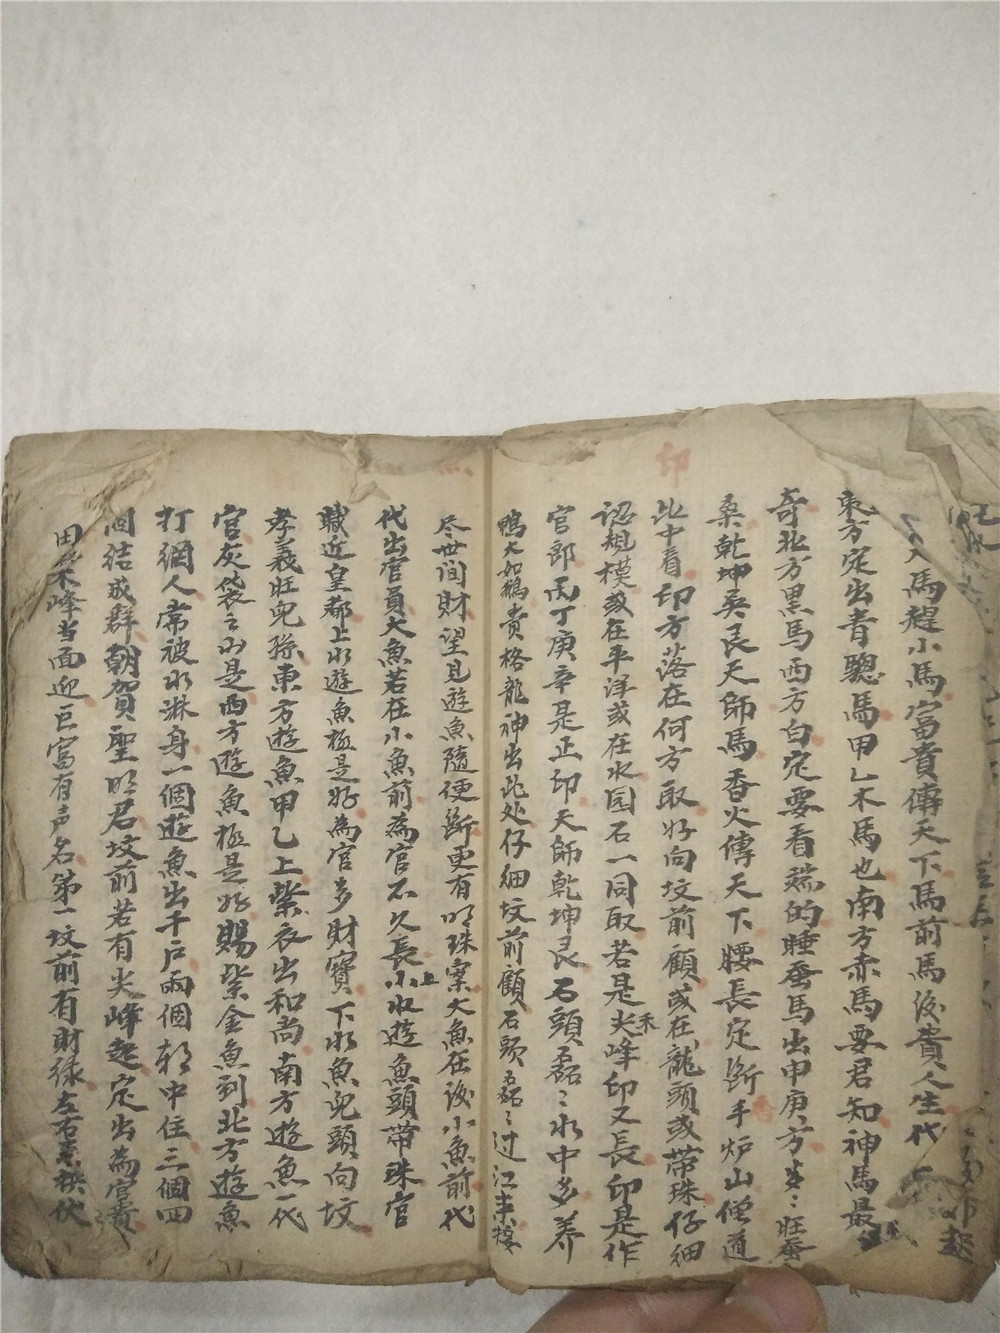 大馬趕小馬富貴傳天下馬前馬後貴人生代
東方定出青驄馬甲乙木馬也南方赤馬要君知神馬最
奇北方黑馬西方白定要看端的睡蚕馬出甲庚方生〻旺蚕
桑乾坤巽艮天師馬香火傳天下腰長定斷手炉山僧道
印
此中看印方落在何方取好向坟前顧或在龍頭或帶珠仔細
認規模或在平洋或在水园石一同取若是尖峰印又長印是作
禾
官郎丙丁庚辛是正印天師乾坤艮石頭磊〻水中多养
鴨大如鵝貴格龍神出此处仔細坟前顧石頭磊〻过江来
魚
尽世间財望見遊魚隨便斷更有明珠案大魚在後小魚前代
代出官員大魚若在小魚前為官不久長小水遊魚頭帶珠官
上
職近皇都上水遊魚極是好為官多財寶下水魚兒頭向坟
孝義旺兒孫東方遊魚甲乙上紫衣出和尚南方遊魚一代
官灰袋之为是西方遊魚極是好賜紫金魚到北方遊魚
打網人常被水淋身一個遊魚出千戶兩個郡中住三個四
個結成群朝賀聖明君坟前若有尖峰起定出為官貴
田 木峰当面迎巨富有声名第一坟前有財禄左右